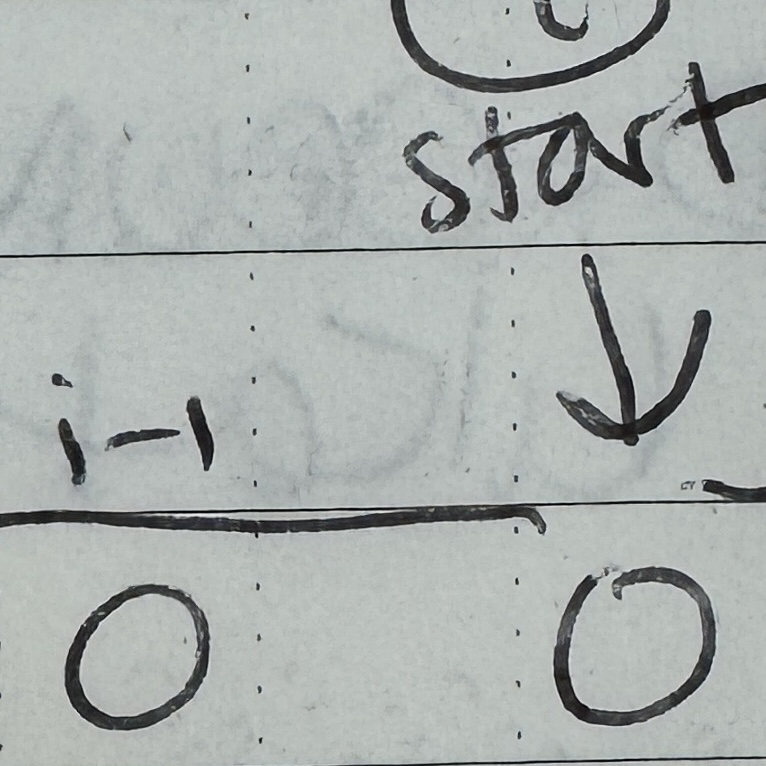 start
i-1 ↓
0 0